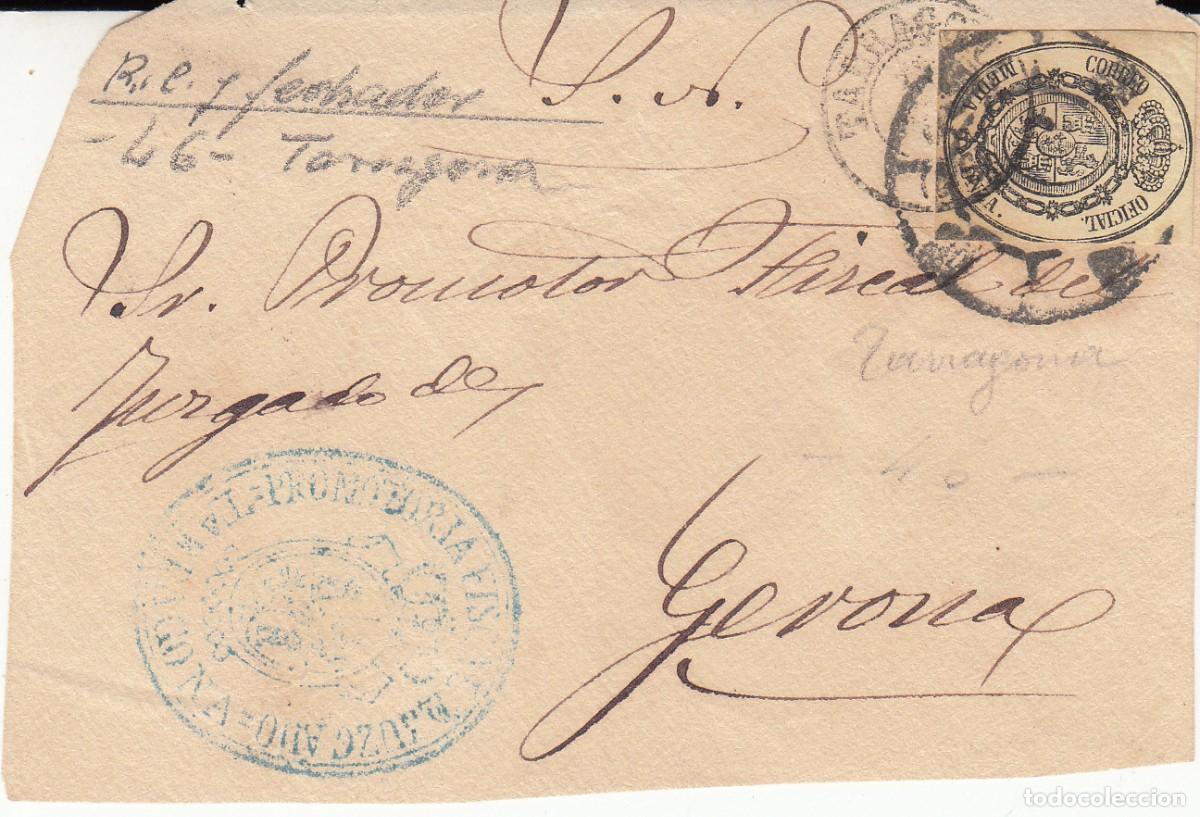 R. C. y fechador
- 46 - Tarragona
S. N.
TARRAGO
CORREO OFICIAL.
MEDIA ONZA
Sr. Promotor Fiscal del
Juzgado de
Tarragona
Gerona
PROMOTORIA FISCAL
JUZGADO
todocoleccion